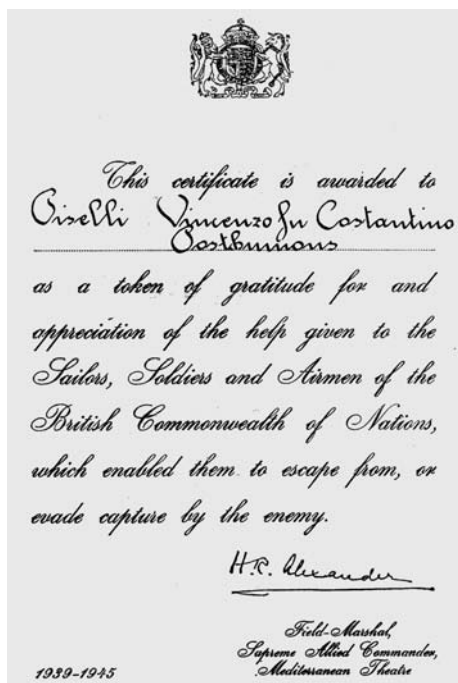 This certificate is awarded to
Piselli Vincenzo fu Costantino
Posthumous
as a token of gratitude for and
appreciation of the help given to the
Sailors, Soldiers and Airmen of the
British Commonwealth of Nations,
which enabled them to escape from, or
evade capture by the enemy.
H.R. Alexander
Field-Marshal,
Supreme Allied Commander,
Mediterranean Theatre
1939-1945